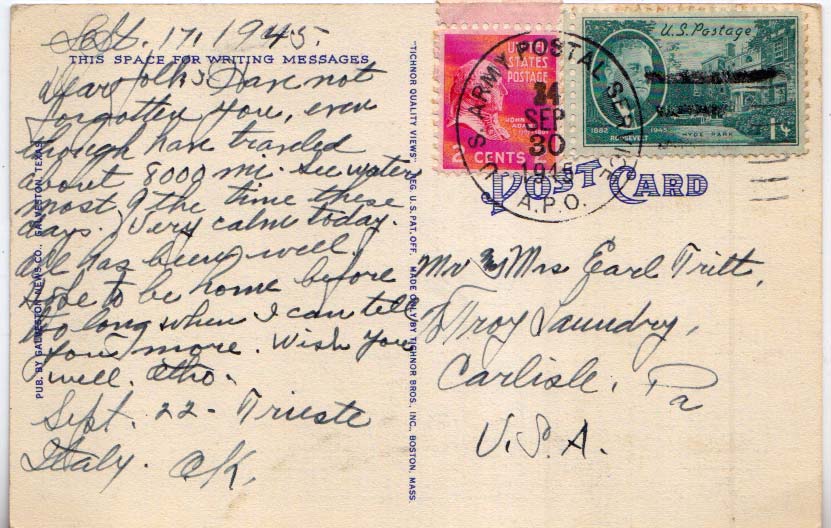 Sept. 17, 1945.
THIS SPACE FOR WRITING MESSAGES
Dear folks: Have not
forgotten you, even
though have traveled
about 8000 mi. See water
most of the time these
days. Very calm today.
All has been well.
to be home before
too long when I can tell
you more. Wish you
well. Otho.
Sept. 22 - Trieste
Italy. OK.
PUB. BY GALVESTON NEWS CO., GALVESTON, TEXAS
"TICHNOR QUALITY VIEWS" REG. U.S. PAT. OFF. MADE ONLY BY TICHNOR BROS., INC., BOSTON, MASS.
UNITED
STATES
POSTAGE
JOHN
ADAMS
2 CENTS 2
U.S. ARMY POSTAL SERVICE
A.P.O.
14
SEP
30
1945
U.S. Postage
1882 1945
ROOSEVELT
HYDE PARK
1¢
POST CARD
Mr & Mrs Earl Tritt,
% Troy Laundry,
Carlisle, Pa
U.S.A.